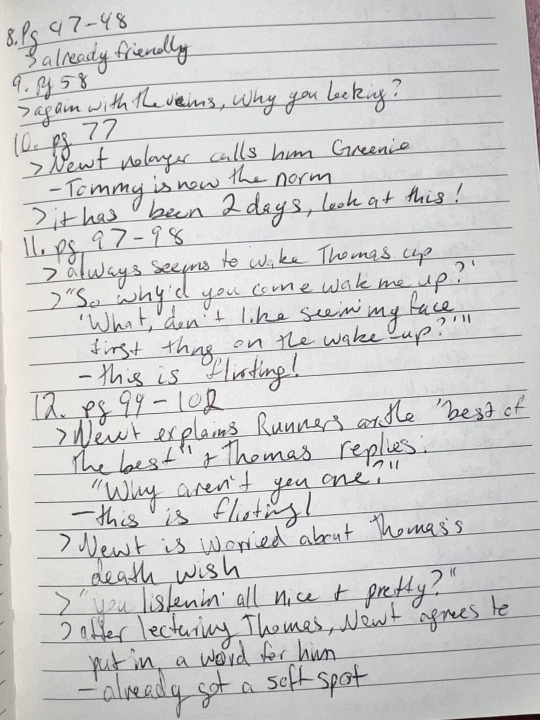 8. Pg 47-48
> already friendly
9. pg 58
> again with the veins, why you looking?
10. pg 77
> Newt nolonger calls him Greenie
- Tommy is now the norm
> it has been 2 days, look at this!
11. pg 97-98
> always seems to wake Thomas up
> "So why'd you come wake me up?'
'What, don't like seein' my face
first thing on the wake-up?'"
- this is flirting!
12. pg 99-102
> Newt explains Runners are the "best of
the best" + Thomas replies:
"Why aren't you one?"
- this is flirting!
> Newt is worried about Thomas's
death wish
> "you listenin' all nice + pretty?"
> after lecturing Thomas, Newt agrees to
put in, a word for him
- already got a soft spot